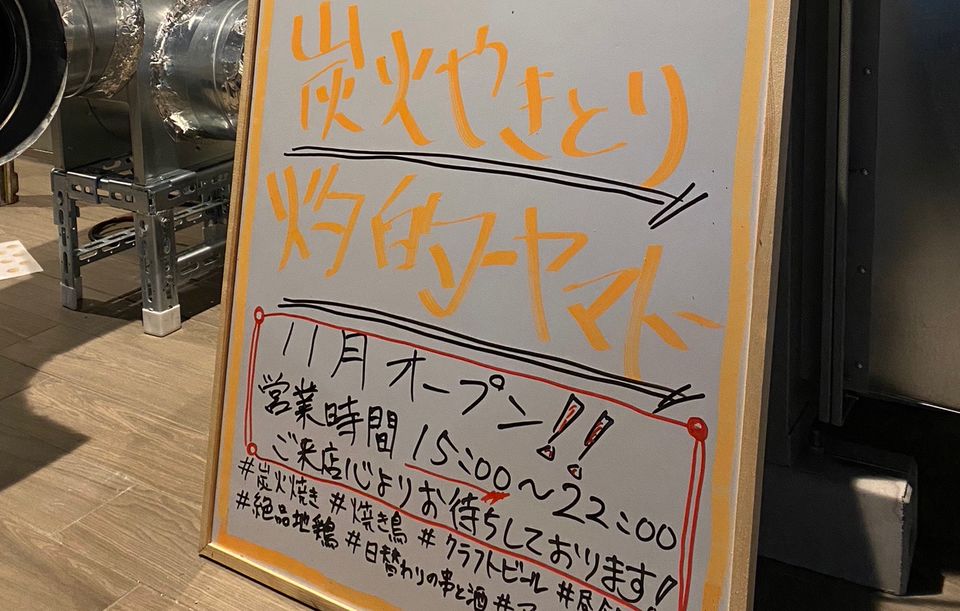 炭火やきとり
灼的ワーヤマト
11月オープン!!
営業時間 15:00～22:00
ご来店心よりお待ちしております!
#炭火焼き #焼き鳥 #クラフトビール
#絶品地鶏 #日替わりの串と酒